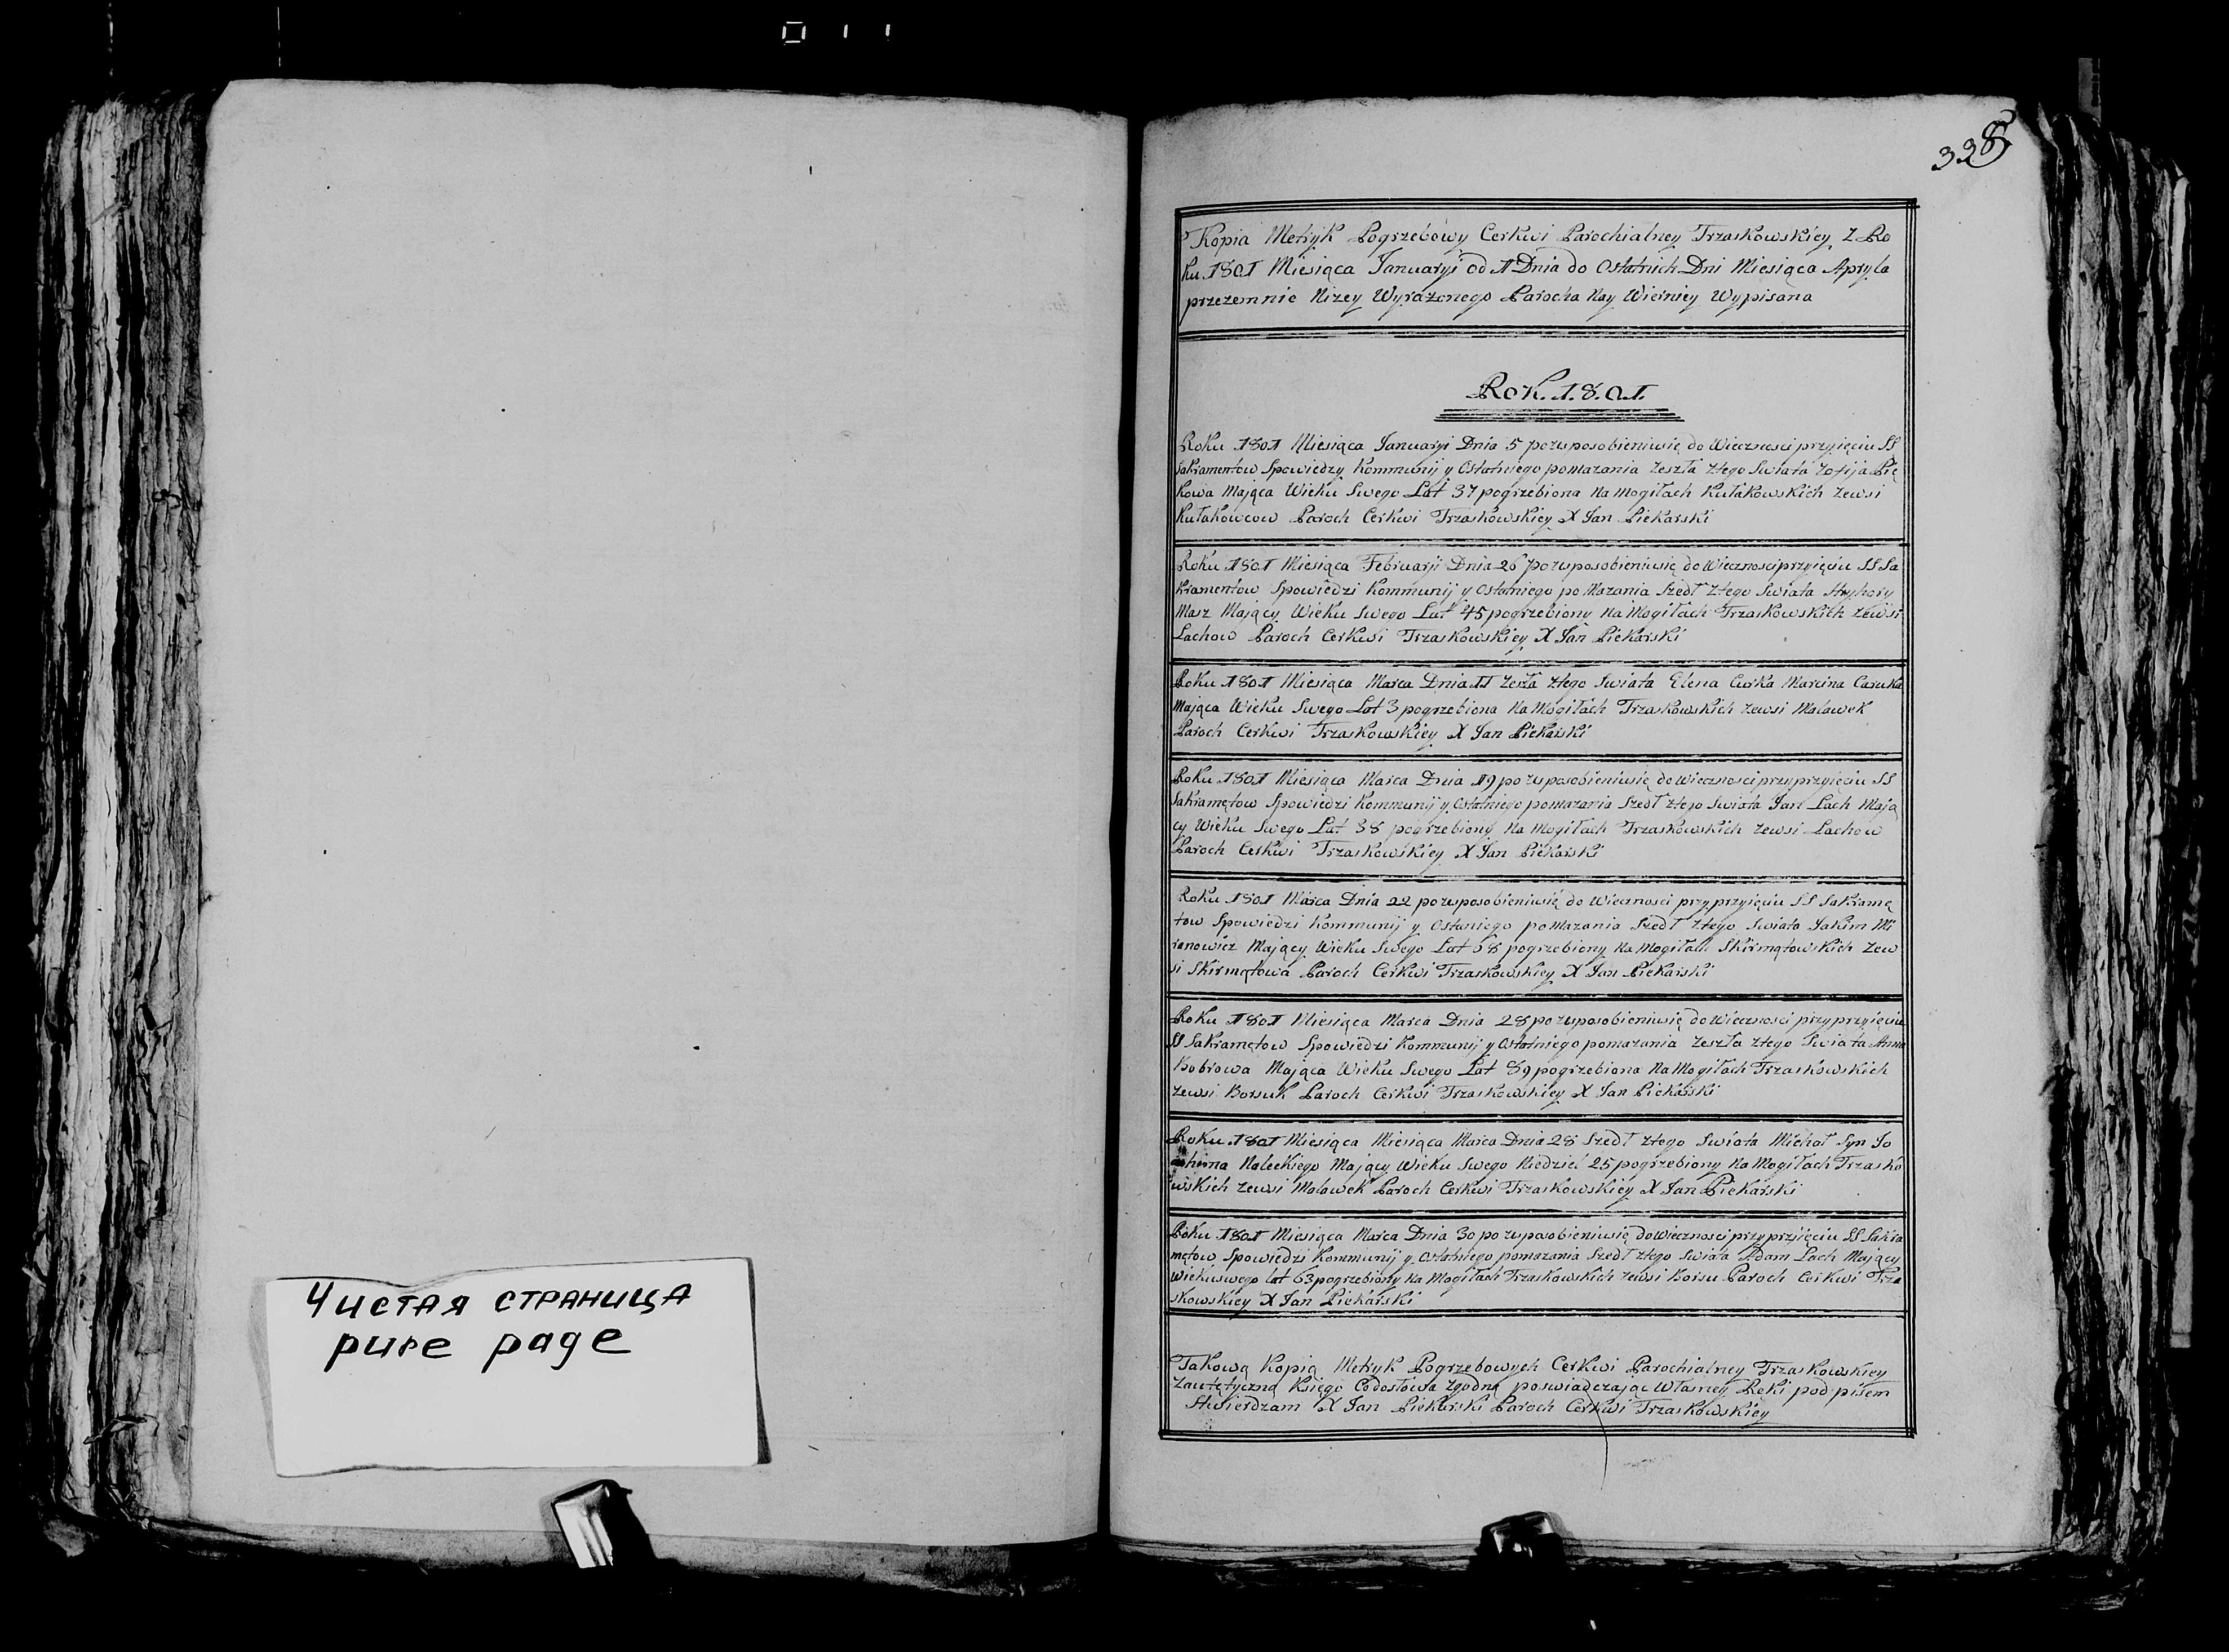 Чистая страница
pure page
338
Kopia Metryk Pogrzebowy Cerkwi Parochialney Trzaskowskiey Z Ro
ku 1801 Miesiąca Januaryi od 1 Dnia do Ostatnich Dni Miesiąca Apryla
przezemnie Nizey Wyrażonego Parocha Nay Wierniey Wypisana
Rok. 1.8.0.1.
Roku 1801 Miesiąca Januaryi Dnia 5 po usposobieniusię do Wiecznosci przyięciu SS
Sakramentow Spowiedzy Kommunij y Ostatniego pomazania Zeszła ztego Swiata Zofija
kowa Mająca Wieku Swego Lat 37 pogrzebiona Na Mogiłach Kułakowskich Zewsi
Kułakowcow Paroch Cerkwi Trzaskowskiey X Jan Piekarski
Roku 1801 Miesiąca Februarji Dnia 26 po usposobieniusię do Wiecznosci przyięciu SS Sa
kramentow Spowiedzi Kommunij y Ostatniego po Mazania Szedł Ztego Swiata Hryhory
Masz Mający Wieku Swego Lat 45 pogrzebiony Na Mogiłach Trzaskowskich Zewsi
Lachow Paroch Cerkwi Trzaskowskiey X Jan Piekarski
Roku 1801 Miesiąca Marca Dnia 11 Zeszła Ztego Swiata Elena Curka Marcina
Mająca Wieku Swego Lat 3 pogrzebiona Na Mogiłach Trzaskowskich Zewsi Malawek
Paroch Cerkwi Trzaskowskiey X Jan Piekarski
Roku 1801 Miesiąca Marca Dnia 19 po usposobieniusię do Wiecznosci przyprzyięciu SS
Sakramętow Spowiedzi Kommunij y Ostatniego pomazania Szedł ztego Swiata Jan Lach Mają
cy Wieku Swego Lat 38 pogrzebiony Na Mogiłach Trzaskowskich Zewsi Lachow
Paroch Cerkwi Trzaskowskiey X Jan Piekarski
Roku 1801 Marca Dnia 22 po usposobieniusię do Wiecznosci przyprzyięciu SS Sakramę
tow Spowiedzi Kommunij y Ostaniego pomazania Szedł Ztego Swiata Jakim Mi
ranowicz Mający Wieku Swego Lat 68 pogrzebiony Na Mogiłach Skirmątowskich Zew
si Skirmątowa Paroch Cerkwi Trzaskowskiey X Jan Piekarski
Roku 1801 Miesiąca Marca Dnia 28 po usposobieniusię do Wiecznosci przyprzyięciu
SS Sakramętow Spowiedzi Kommunij y Ostatniego pomazania Zeszła ztego Swiata Anna
Bobrowa Mająca Wieku Swego Lat 89 pogrzebiona Na Mogiłach Trzaskowskich
Zewsi Borsuk Paroch Cerkwi Trzaskowskiey X Jan Piekarski
Roku 1801 Miesiąca Miesiąca Marca Dnia 28 Szedł ztego Swiata Michał Syn Jo
achima Naleckiego Mający Wieku Swego Niedziel 25 pogrzebiony Na Mogiłach Trzasko
wskich Zewsi Malawek Paroch Cerkwi Trzaskowskiey X Jan Piekarski
Roku 1801 Miesiąca Marca Dnia 30 po usposobieniusię do Wiecznosci przyprzyięciu SS Sakra
mętow Spowiedzi Kommunij y Ostatniego pomazania Szedł ztego Swiata Adam Lach Mający
Wiekuswego lat 63 pogrzebiony Na Mogiłach Trzaskowskich Zewsi Borsu Paroch Cerkwi Trza
skowskiey X Jan Piekarski
Takową Kopią Metryk Pogrzebowych Cerkwi Parochialney Trzaskowskiey
Zautętyczną Ksiego Codosłowa Zgodną poswiadczając Własney Ręki pod pisem
Stwierdzam X Jan Piekarski Paroch Cerkwi Trzaskowskiey